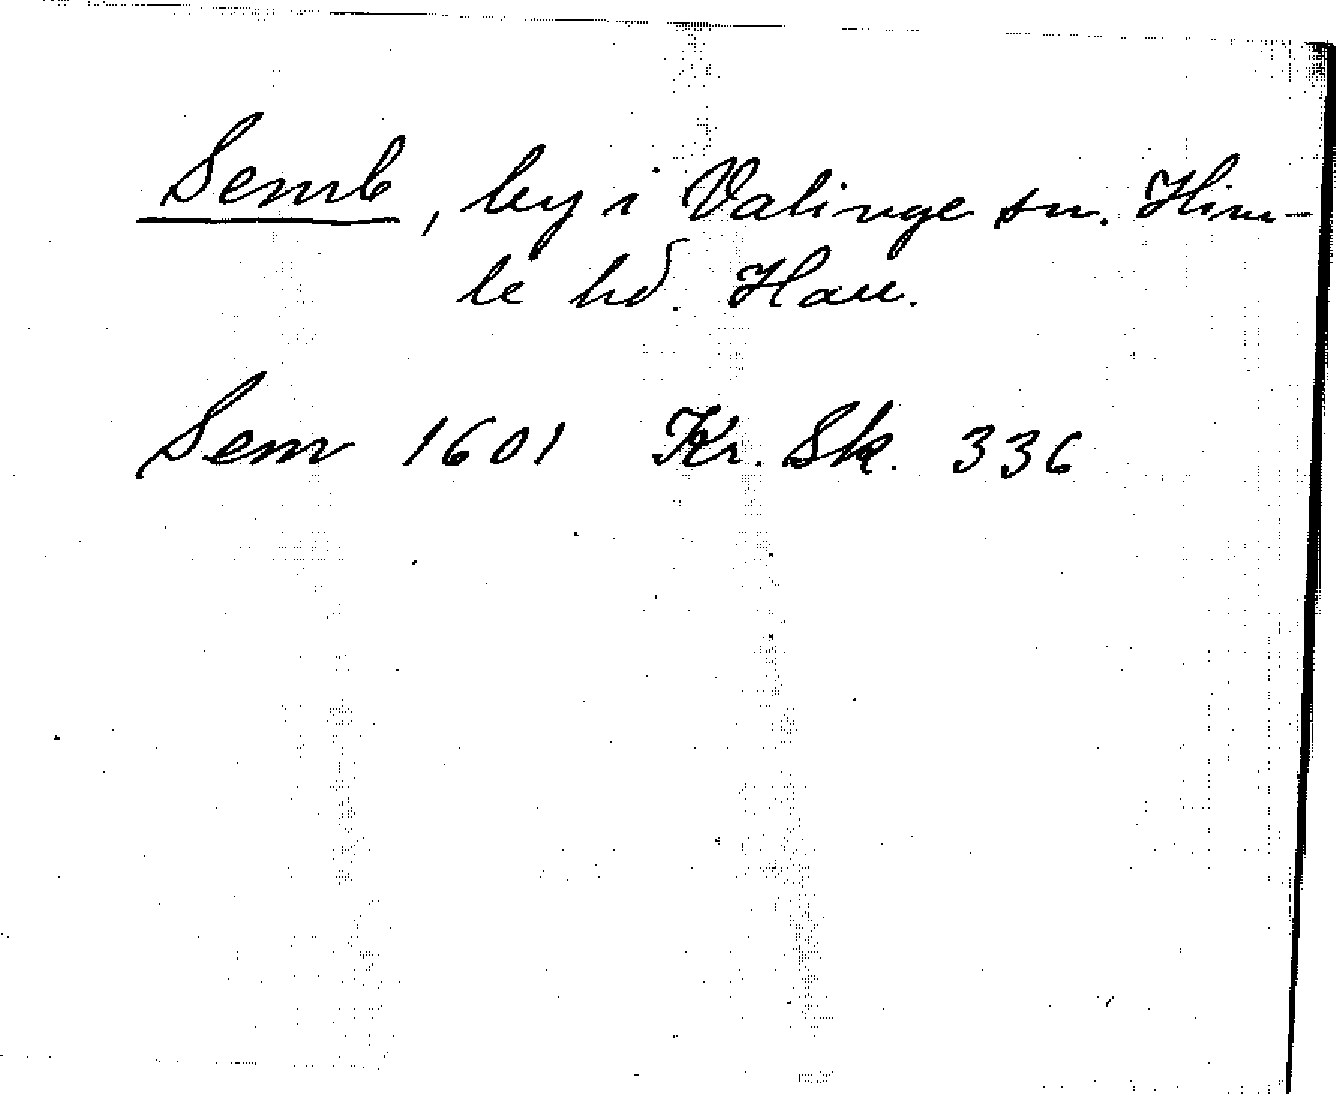 Semb, by i Valinge sn. Him-
le hd. Hall.
Sem 1601 Kr. Sk. 336